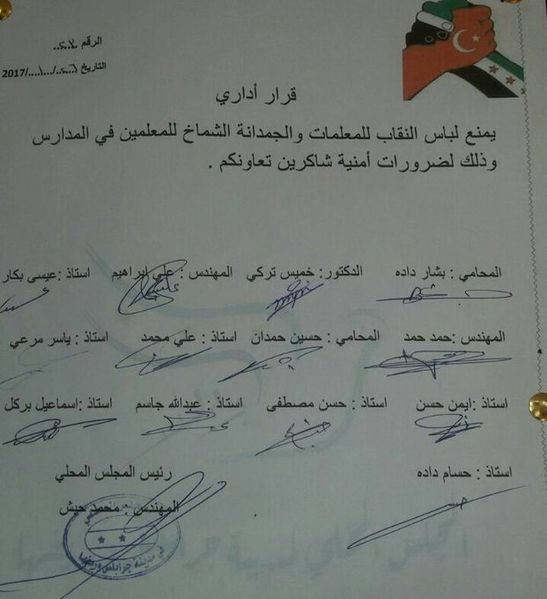 الرقم
التاريخ /2017/
قرار أداري
يمنع لباس النقاب للمعلمات والجمدانة الشماخ للمعلمين في المدارس
وذلك لضرورات أمنية شاكرين تعاونكم .
المحامي : بشار داده الدكتور: خميس تركي المهندس : علي ابراهيم استاذ :عيسى بكار
المهندس :حمد حمد المحامي : حسين حمدان استاذ : علي محمد استاذ: ياسر مرعي
استاذ: ايمن حسن استاذ : حسن مصطفى استاذ : عبدالله جاسم استاذ: اسماعيل بركل
استاذ : حسام داده رئيس المجلس المحلي
المهندس : محمد حبش
في مدينة جرابلس وريفها